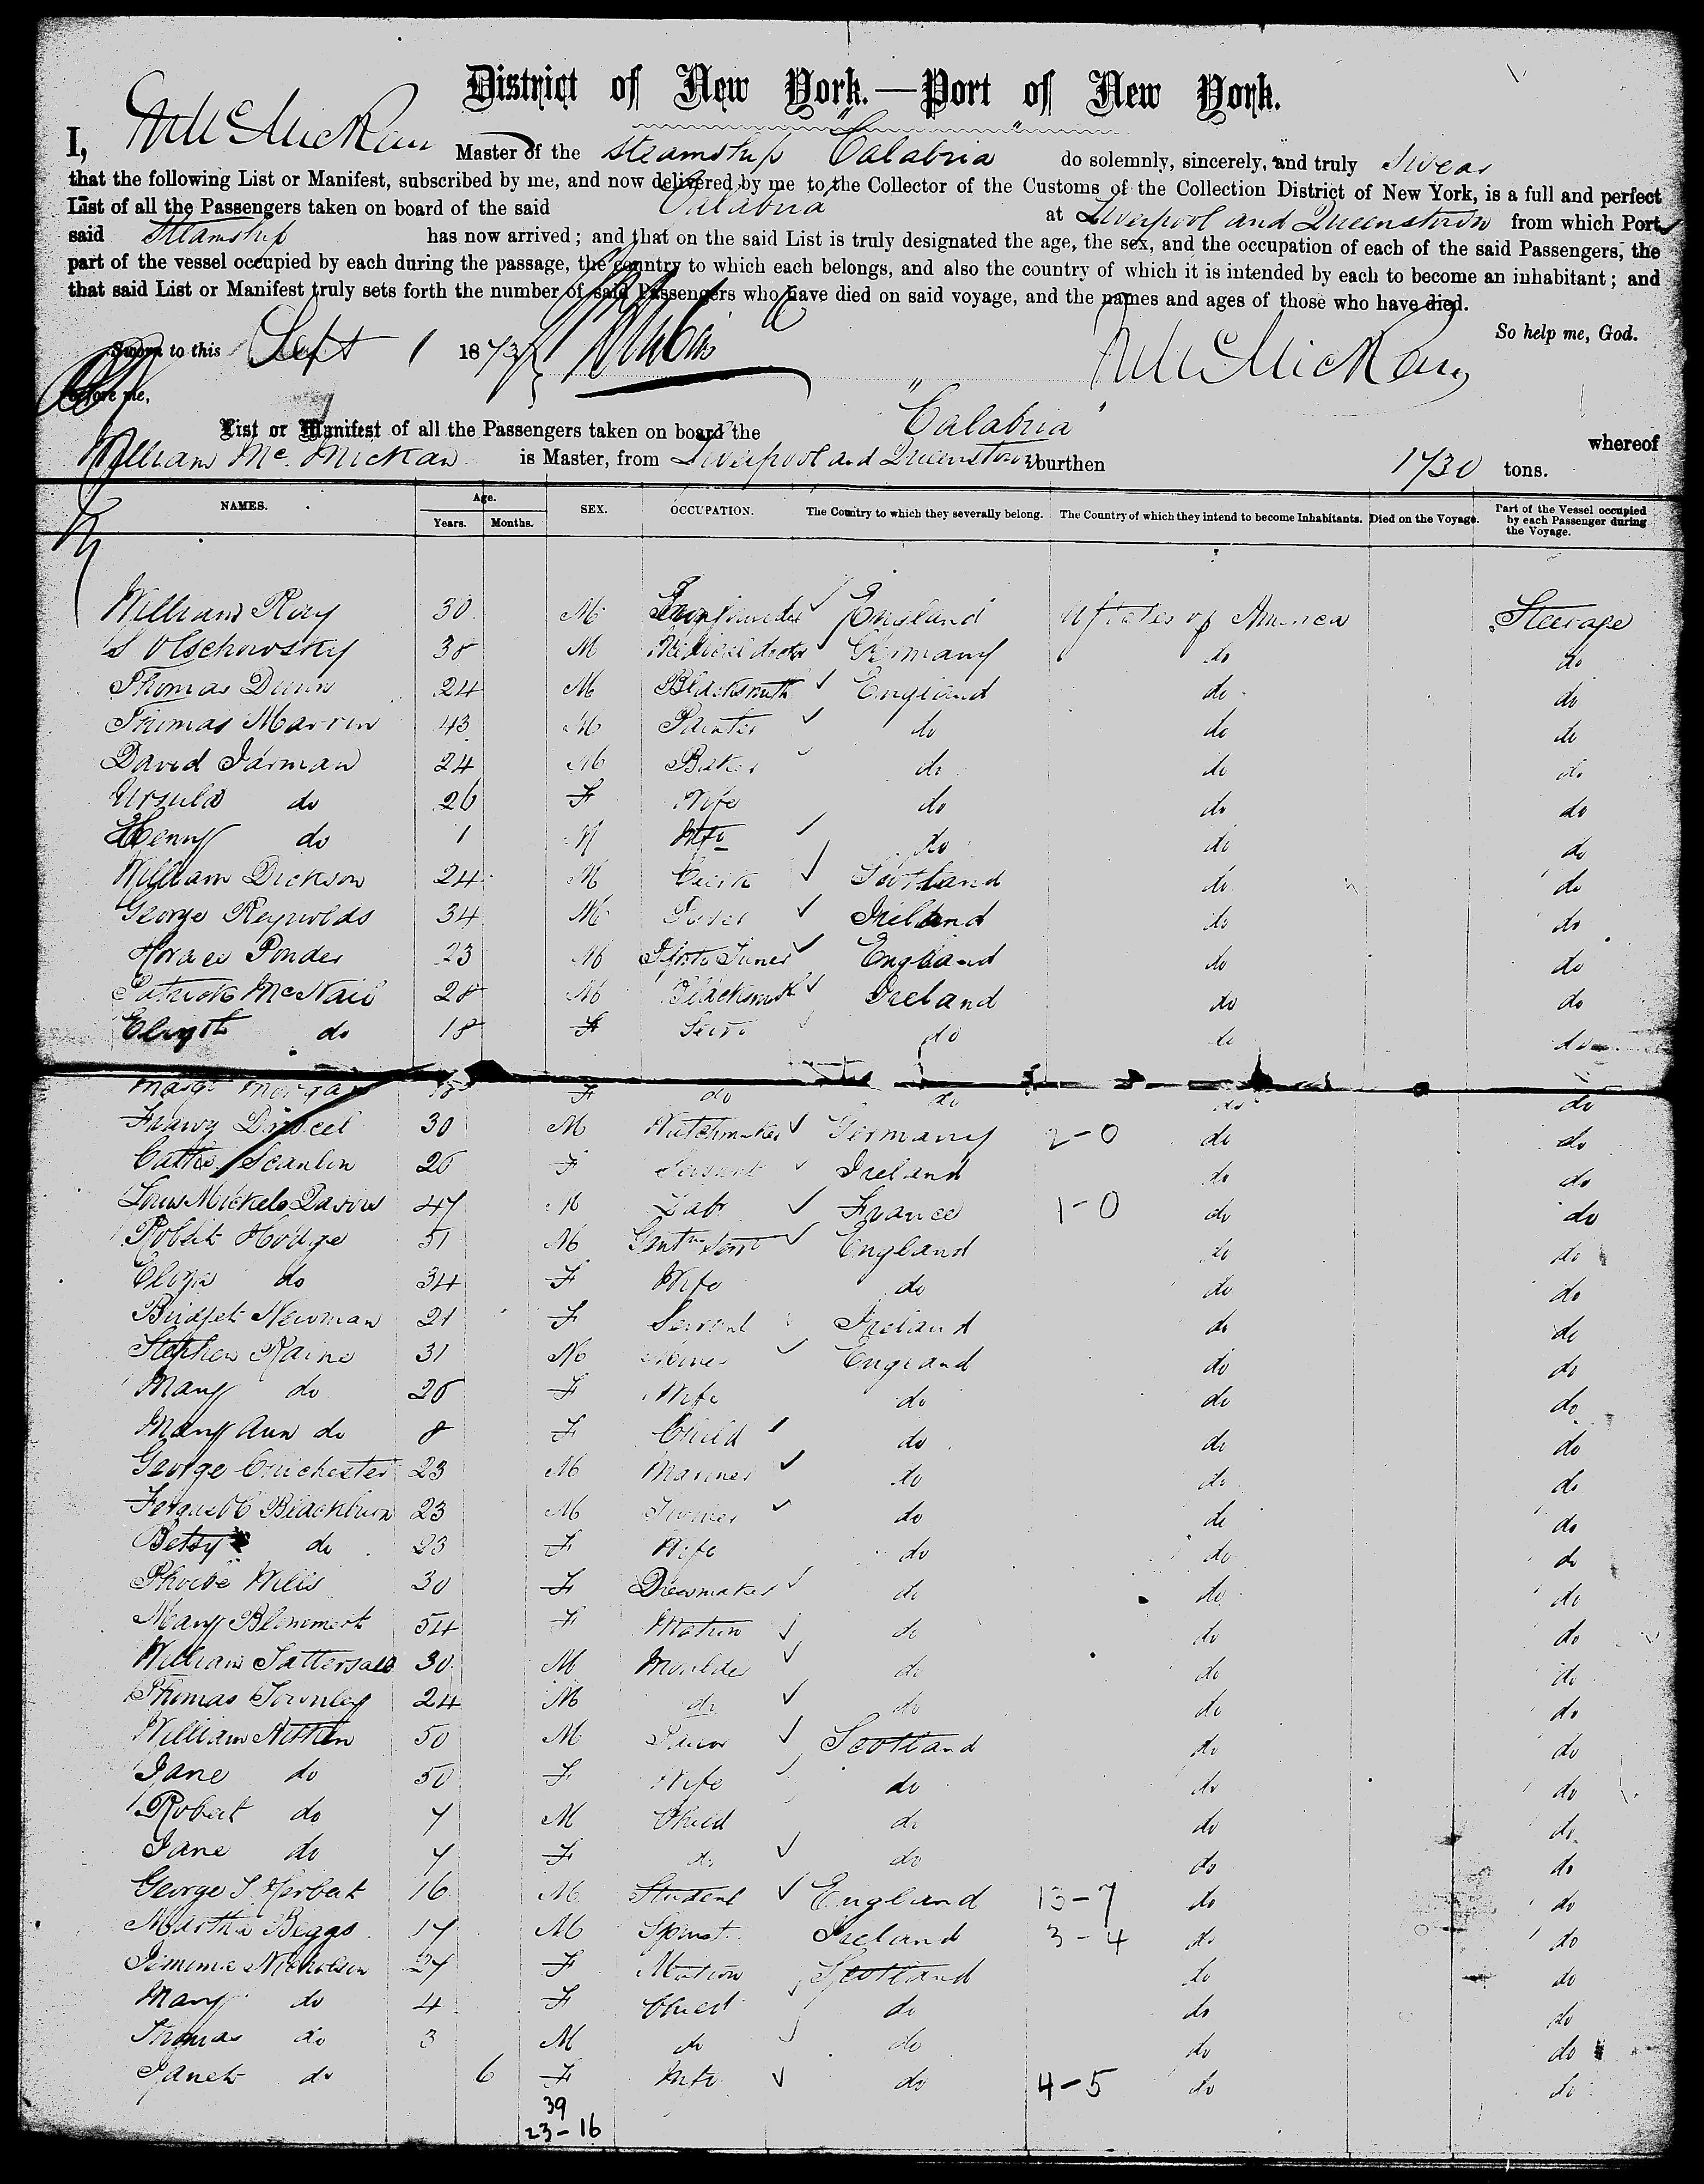 District of New York.—Port of New York.
I, Wm McMickan Master of the steamship "Calabria" do solemnly, sincerely, and truly swear
that the following List or Manifest, subscribed by me, and now delivered by me to the Collector of the Customs of the Collection District of New York, is a full and perfect
List of all the Passengers taken on board of the said Calabria at Liverpool and Queenstown from which Port
said Steamship has now arrived; and that on the said List is truly designated the age, the sex, and the occupation of each of the said Passengers, the
part of the vessel occupied by each during the passage, the country to which each belongs, and also the country of which it is intended by each to become an inhabitant; and
that said List or Manifest truly sets forth the number of said Passengers who have died on said voyage, and the names and ages of those who have died.
So help me, God.
Sworn to this Sept 1 1873 Wm McMickan
before me,
List or Manifest of all the Passengers taken on board the "Calabria" whereof
William Mc. Mickan is Master, from Liverpool and Queenstown burthen 1730 tons.
NAMES. Age. Years. Months. SEX. OCCUPATION. The Country to which they severally belong. The Country of which they intend to become Inhabitants. Died on the Voyage. Part of the Vessel occupied by each Passenger during the Voyage.
William Ray 30 M England U States of America Steerage
S Olschowsky 38 M Medical doctor Germany do do
Thomas Dunn 24 M Blacksmith England do do
Thomas Marrin 43 M Painter do do do
David Jarman 24 M Baker do do do
Ursula do 26 F Wife do do do
Henry do 1 M Inft do do do
William Dickson 24 M Clerk Scotland do do
George Reynolds 34 M Ireland do do
Horace Ponder 23 M Pforte Tuner England do do
Patrick McNail 28 M Blacksmith Ireland do do
Elizth do 18 F Servt do do do
Margt Morgan 18 F do do do do
Franz 30 M Watchmaker Germany 2-0 do do
Cathe Scanlin 26 F Servant Ireland do do
Louis Mickels 47 M Labr France 1-0 do do
Robert Hodge 51 M Gentns Servt England do do
Eliza do 34 F Wife do do do
Bridget Newman 21 F Servant Ireland do do
Stephen Raine 31 M Miner England do do
Mary do 26 F Wife do do do
Mary Ann do 8 F Child do do do
George Chichester 23 M Mariner do do do
Blackburn 23 M do do do
Betsy do 23 F Wife do do do
Phoebe Wills 30 F Dressmaker do do do
Mary 54 F Matron do do do
William Tattersall 30 M Moulder do do do
Thomas Townley 24 M do do do do
William Aitken 50 M Scotland do do
Jane do 50 F Wife do do do
Robert do 7 M Child do do do
Jane do 7 F do do do do
George S. Herbert 16 M Student England 13-7 do do
Martha Beggs 17 M Spinst Ireland 3-4 do do
Jemima Nicholson 27 F Matron Scotland do do
Mary do 4 F Child do do do
Thomas do 3 M do do do do
Janet do 6 F Inft do 4-5 do do
39
23-16